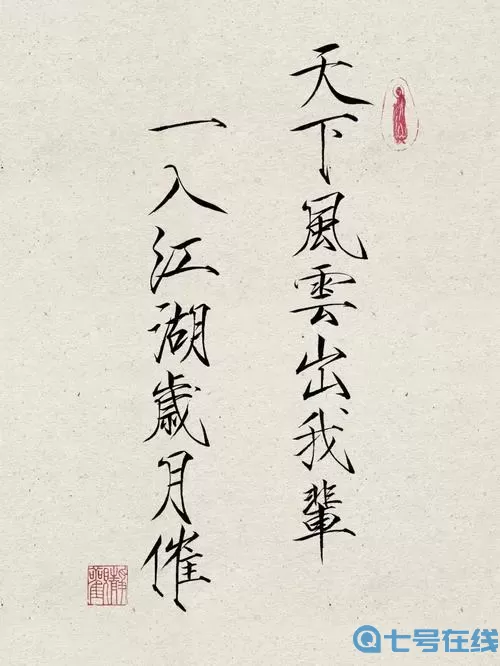 天下風雲出我輩
一入江湖歲月催
七号在线